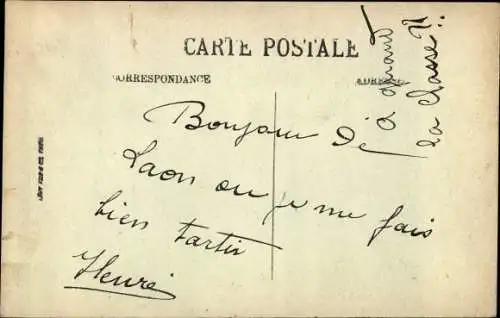 CARTE POSTALE
CORRESPONDANCE
ADRESSE
Bonjour dé
Laon ou je me fais
bien tartir
Henri
a quand
la classe !!